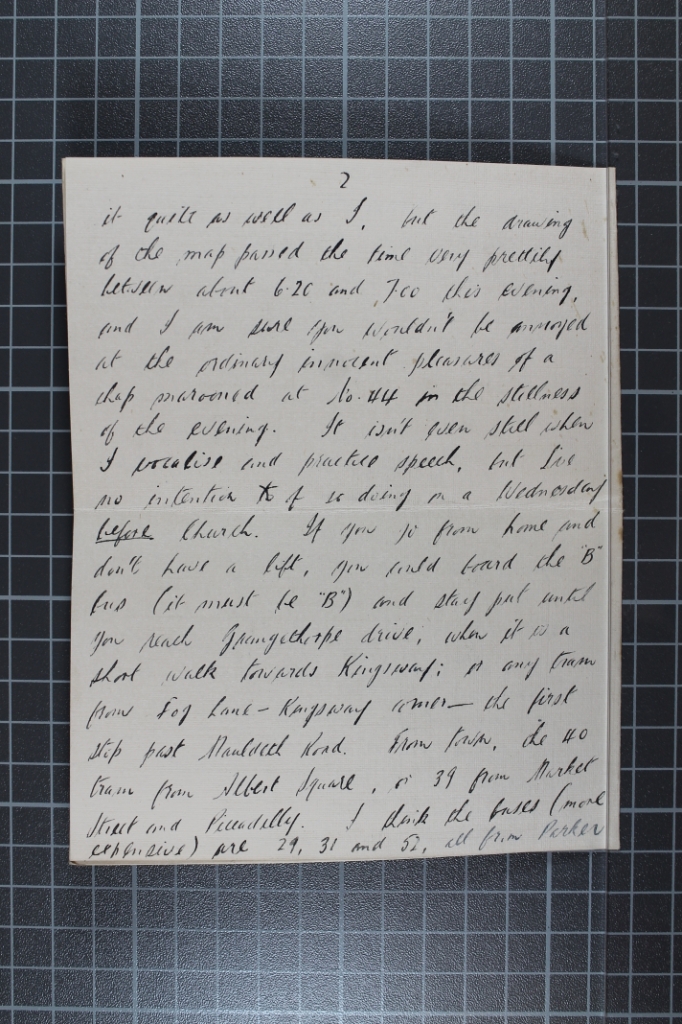 2
it quite as well as I, but the drawing
of the map passed the time very prettily
between about 6.20 and 7.00 this evening,
and I am sure you wouldn't be annoyed
at the ordinary innocent pleasures of a
chap marooned at No. 44 in the stillness
of the evening. It isn't even still when
I vocalise and practice speech, but I've
no intention of so doing on a Wednesday
before Church. If you go from home and
don't have a lift, you could board the "B"
bus (it must be "B") and stay put until
you reach Grangethorpe drive, when it is a
short walk towards Kingsway; or any tram
from Fog Lane - Kingsway corner — the first
stop past Mauldeth Road. From town, the 40
tram from Albert Square, or 39 from Market
Street and Piccadilly. I think the buses (more
expensive) are 29, 31 and 52, all from Parker